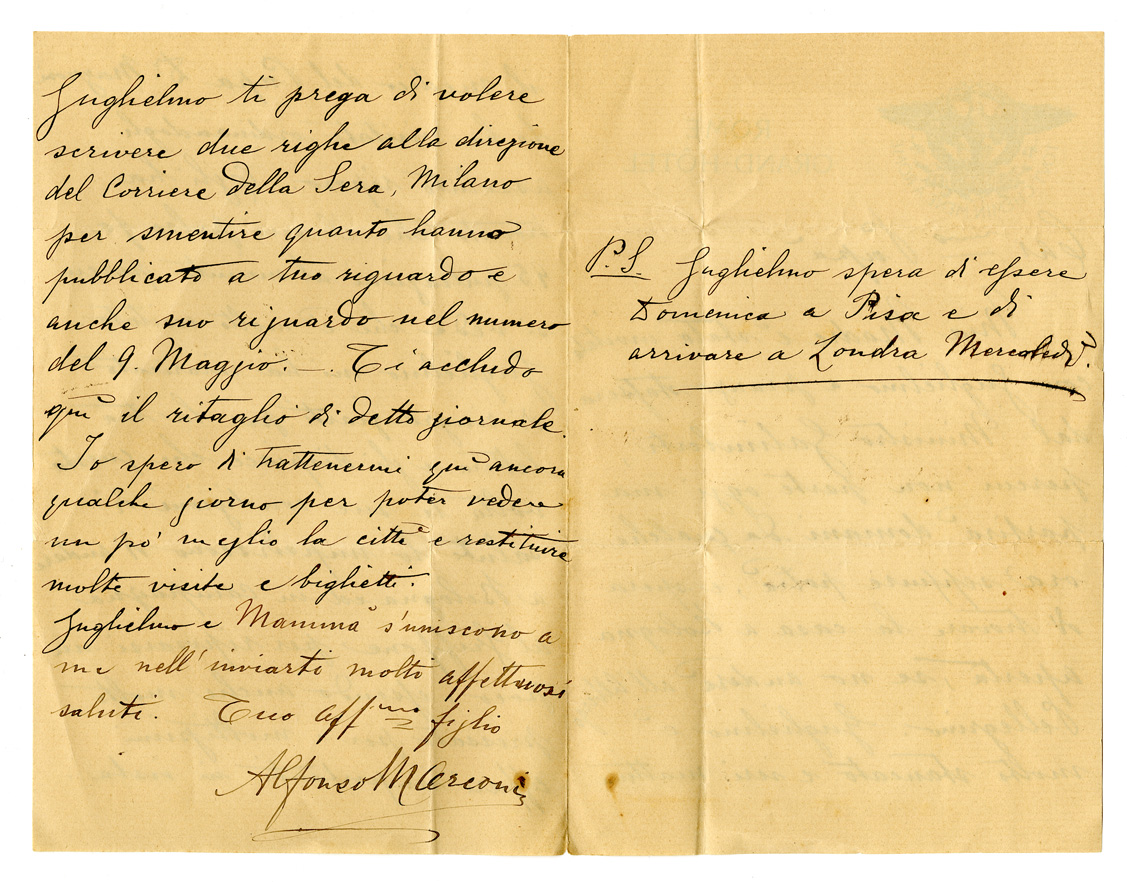 Guglielmo ti prega di volere
scrivere due righe alla direzione
del Corriere della Sera, Milano
per smentire quanto hanno
pubblicato a tuo riguardo e
anche suo riguardo nel numero
del 9. Maggio. —. Ti accludo
quì il ritaglio di detto giornale.
Io spero di trattenermi quì ancora
qualche giorno per poter vedere
un pò' meglio la città e restituire
molte visite e biglietti.
Guglielmo e Mamma s'uniscono a
me nell'inviarti molti affettuosi
saluti. Tuo affmo figlio
Alfonso Marconi
P.S. Guglielmo spera di essere
Domenica a Pisa e di
arrivare a Londra Mercoledì.